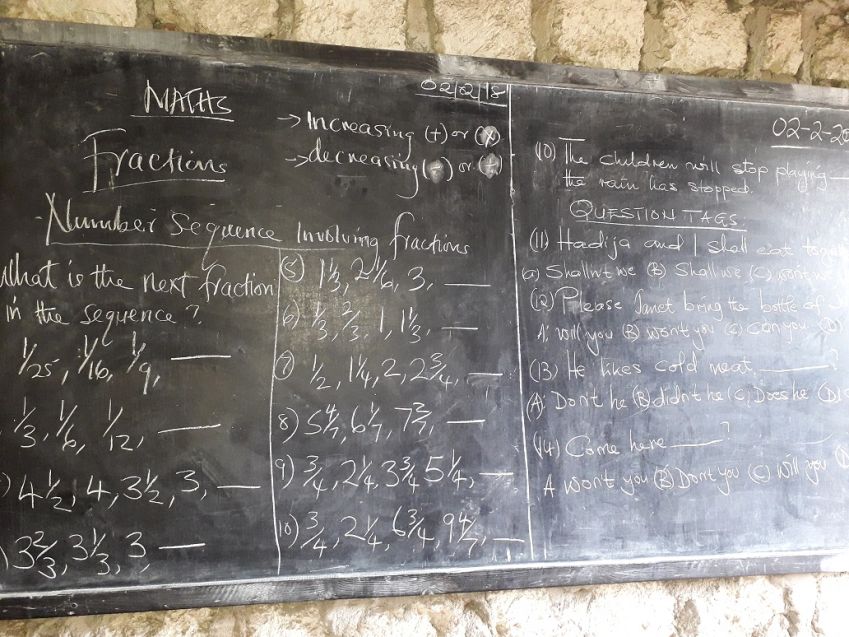 MATHS
02/2/18
Fractions
→ Increasing (+) or (×)
→ decreasing (-) or (÷)
Number Sequence Involving fractions
What is the next fraction
in the sequence?
1/25, 1/16, 1/9, ___
1/3, 1/6, 1/12, ___
) 4 1/2, 4, 3 1/2, 3, ___
) 3 2/3, 3 1/3, 3, ___
(5) 1 1/3, 2 1/6, 3, ___
(6) 1/3, 2/3, 1, 1 1/3, ___
(7) 1/2, 1 1/4, 2, 2 3/4, ___
8) 5 4/7, 6 1/7, 7 2/7, ___
9) 3/4, 2 1/4, 3 3/4, 5 1/4, ___
10) 3/4, 2 1/4, 6 3/4, 9 4/7, ___
02-2-20
(10) The children will stop playing ___
the rain has stopped.
QUESTION TAGS
(11) Hadija and I shall eat
(a) Shalln't we (B) Shall we (C) won't we
(12) Please Janet bring the bottle of
A) will you (B) won't you (C) Can you (D)
(13) He likes cold meat, ___?
(A) Don't he (B) didn't he (C) Does he (D)
(14) Come here ___?
A won't you (B) Don't you (C) Will you (D)